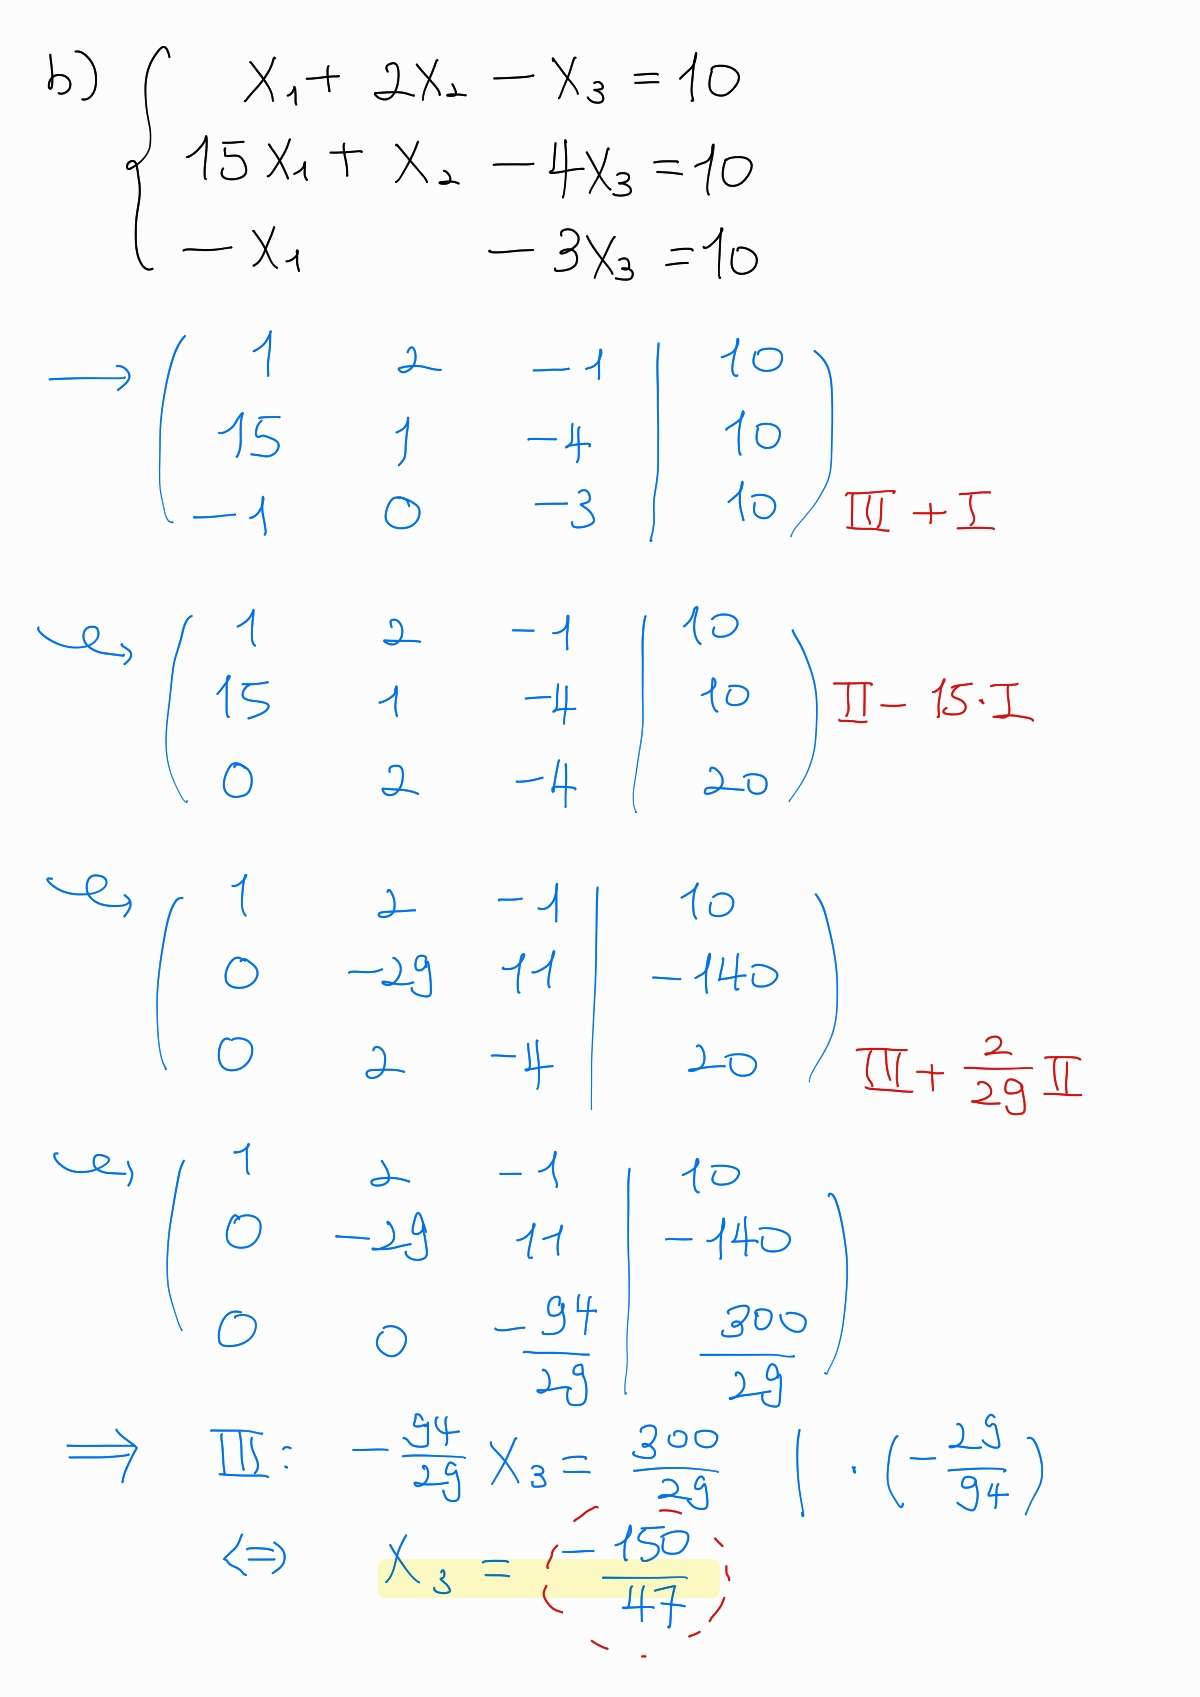 b) { x₁ + 2x₂ - x₃ = 10
15x₁ + x₂ - 4x₃ = 10
- x₁ - 3x₃ = 10
→ ( 1 2 -1 | 10
15 1 -4 | 10
-1 0 -3 | 10 ) III + I
↝ ( 1 2 -1 | 10
15 1 -4 | 10 II - 15·I
0 2 -4 | 20 )
↝ ( 1 2 -1 | 10
0 -29 11 | -140
0 2 -4 | 20 ) III + 2/29 II
↝ ( 1 2 -1 | 10
0 -29 11 | -140
0 0 -94/29 | 300/29 )
⇒ III: -94/29 x₃ = 300/29 | · (-29/94)
⇔ x₃ = -150/47